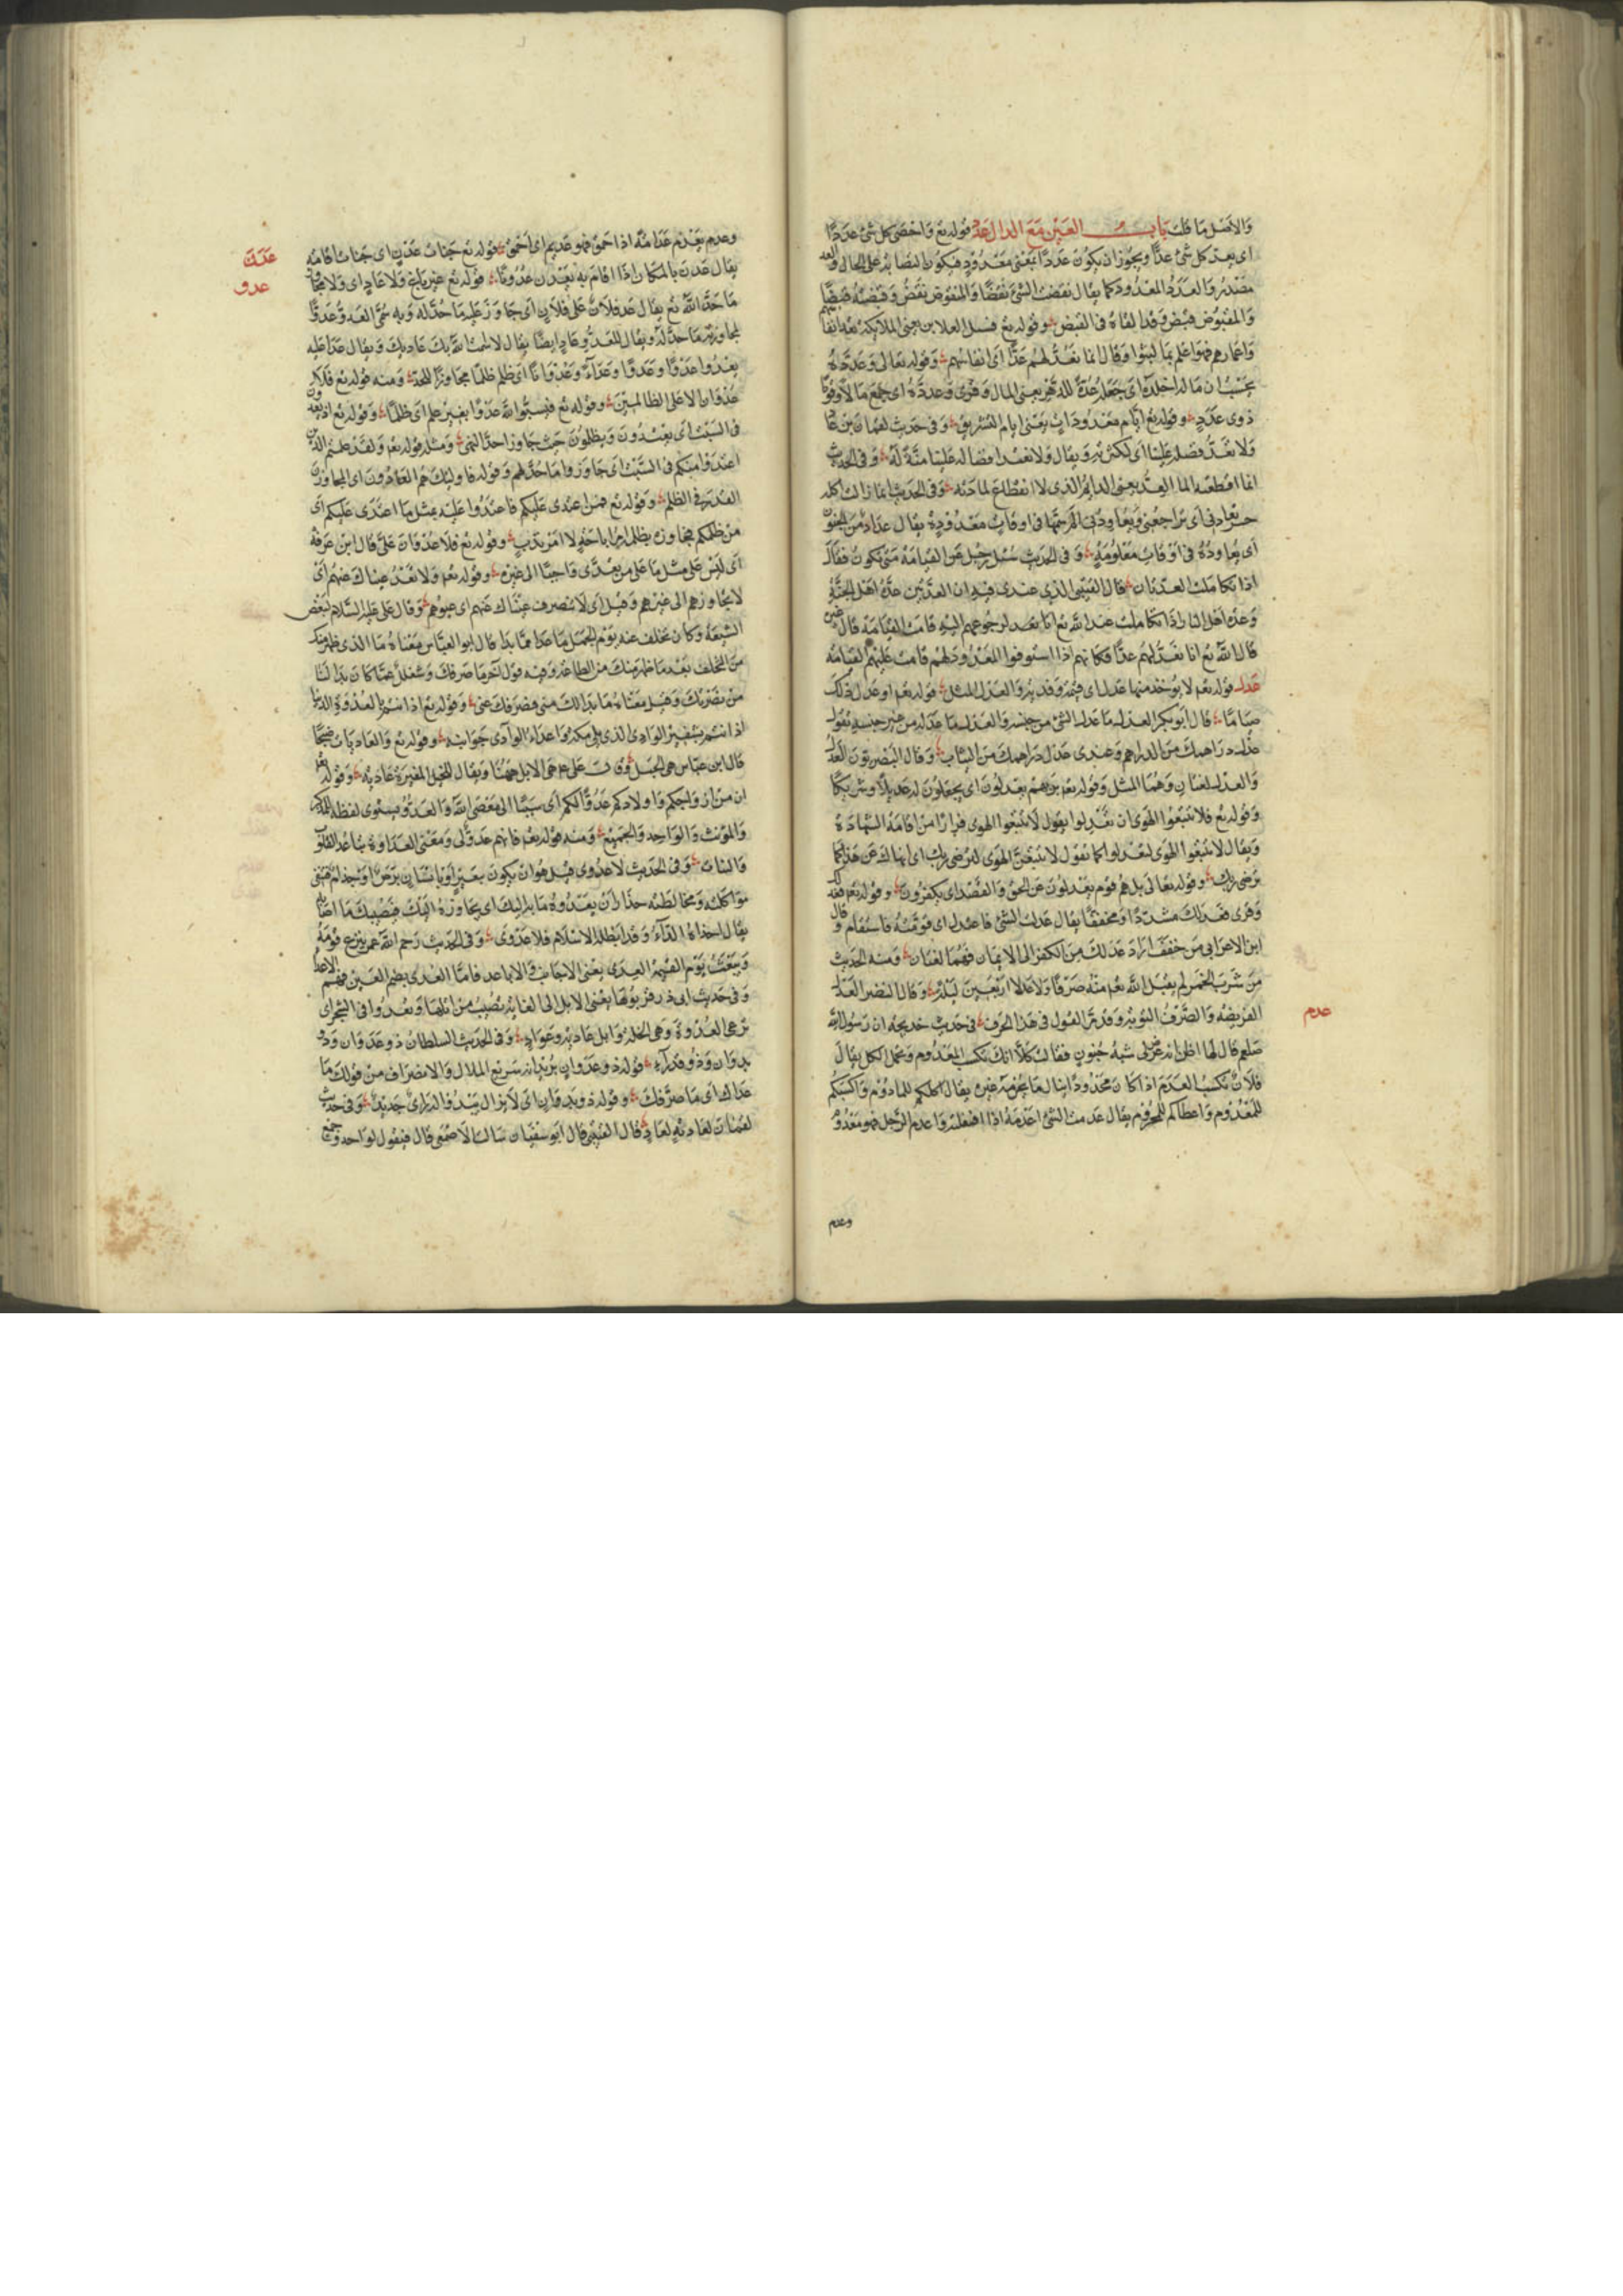 والاصل ما قلت باب العين مع الدال عد قوله تع واحصى كل شئ عددا
اى يعد كل شئ عدا ويجوز ان يكون عددا بمعنى معدود فيكون انتصابه على الحال والعد
مصدر والعدد المعدود كما يقال نفضت الشئ نفضا والمنفوض نفض وقبضته قبضا
والمقبوض قبض وقد القاه فى القبض وقوله تع فسئل العادين يعنى الملائكة تعد انفاسهم
واعمارهم فهو اعلم بما لبثوا وقال انما نعد لهم عدا اى انفاسهم وقوله تعالى وعدده
يحسب ان ماله اخلده اى جعله عدة للدهر يعنى المال وقرئ وعدده اى جمع مالا وقوما
ذوى عدد وقوله تع ايام معدودات يعنى ايام التشريق وفى حديث لقمان بن عاد
ولا نعد فضله علينا اى لكثرته ويقال ولا نعتد افضاله علينا منة له وفى الحديث
انما اقطعته الما العد يعنى الدايم الذى لا انقطاع لمادته وفى الحديث ما زالت اكلة
خيبر تعادنى اى تراجعنى ويعاودنى الم سمها فى اوقات معدودة يقال به عداد من الجنون
اى يعاوده فى اوقات معلومة وفى الحديث سئل رجل عن القيامة متى تكون فقال
اذا تكاملت العدتان قال القتيبى الذى عندى فيه ان العدتين عدة اهل الجنة
وعدة اهل النار اذا تكاملت عند الله تع انا بعد لرجوعهم اليه قامت القيامة قال غيره
قال الله تع انا نعد لهم عدا فكانهم اذا استوفوا المعدود لهم قامت عليهم القيامة
عدل قوله تعم لا يؤخذ منها عدل اى فيقة وفدية والعدل المثل قوله تعم او عدل ذلك
صياما قال ابو بكر العدل ما عدل الشئ من جنسه والعدل ما عدله من غير جنسه تقول
عندى عدل دراهمك من الدراهم وعندى عدل دراهمك من الثياب وقال البصريون العدل
والعدل لغتان وهما المثل وقوله تعم بربهم يعدلون اى يجعلون له عديلا وشريكا
وقوله تع فلا تتبعوا الهوى ان تعدلوا يقول لا تتبعوا الهوى فرارا من اقامة الشهادة
ويقال لا تتبعوا الهوى لتعدلوا كما تقول لا تتبعن الهوى لترضى ربك اى انهاك عن هذا كما
ترضى ربك وقوله تعالى بل هم قوم يعدلون عن الحق والقصد اى يكفرون وقوله تعم فعدلك
وقرئ فعدلك مشددا ومخففا يقال عدلت الشئ فاعتدل اى قومته فاستقام وقال
ابن الاعرابى من خفف اراد عدلك من الكفر الى الايمان فهما لغتان ومنه الحديث
من شرب الخمر لم يقبل الله تعم منه صرفا ولا عدلا اربعين ليلة وقال النضر العدل
الفريضة والصرف التوبة وقد مر القول فى هذا الحرف فى حديث خديجة ان رسول الله
صلعم قال لها اظن انه عرض لى شبه جنون فقالت كلا انك تكسب المعدوم وتحمل الكل يقال
فلان تكسب العدم اذا كان مجدودا ينال ما يحرمه غيره يقال اكلكم للمادوم واكسبكم
للمعدوم واعطاكم للمحروم يقال عدمت الشئ اعدمه اذا افتقدته واعدم الرجل فهو معدم
عدم
وعدم
وعدم يعدم عدامة اذا حمق فهو عديم اى احمق قوله تع جنات عدن اى جنات اقامة
عدن
يقال عدن بالمكان اذا اقام به يعدن عدونا قوله تع غير باغ ولا عاد اى ولا مجاوز
عدو
ما حد الله تع يقال عد فلان على فلان اى جاوز عليه ما حد له وبه سمى العدو عدوا
لمجاوزته ما حد له ويقال للعدو عاد ايضا يقال لا اشمت الله بك عاديك ويقال عدا عليه
يعدوا عدوا وعدوا وعداء وعدوانا اى ظلم ظلما مجاوزا للحد ومنه قوله تع فلا
عدوان الا على الظالمين وقوله تع فيسبوا الله عدوا بغير علم اى ظلما وقوله تع اذ يعدون
فى السبت اى يعتدون ويظلمون حيث جاوزا حد النهى ومثله قوله تعم ولقد علمتم الذين
اعتدوا منكم فى السبت اى جاوزوا ما حد لهم وقوله فاوليك هم العادون اى المجاوزون
القدر فى الظلم وقوله تع فمن اعتدى عليكم فاعتدوا عليه بمثل ما اعتدى عليكم اى
من ظلمكم فجازوه بظلمه اباحة لا امر ندب وقوله تع فلا عدوان على قال ابن عرفة
اى ليس على مثل ما على من تعدى واجبا الى غيره وقوله تعم ولا تعد عيناك عنهم اى
لا تجاوزهم الى غيرهم وقيل اى لا تنصرف عيناك عنهم اى عيوهم وقال على عليه السلام لبعض
الشيعة وكان تخلف عنه يوم الجمل ما عدا مما بدا قال ابو العباس معناه ما الذى ظهر منك
من التخلف بعد ما ظهر منك من الطاعة وفيه قول آخر ما صرفك وشغلك عما كان بدا لنا
من نصرتك وقيل معناه ما بدا لك منى فصرفك عنى وقوله تع اذ انتم بالعدوة الدنيا
اذ انتم بشفير الوادى الذى يلى مكة وعداء الوادى جوانبه وقوله تع والعاديات ضبحا
قال ابن عباس هى الخيل وقال على هى الابل ههنا ويقال للخيل المغيرة عادية وقوله تع
ان من ازواجكم واولادكم عدوا لكم اى سببا الى معصية الله والعدو يستوى لفظه للمذكر
والمؤنث والواحد والجميع ومنه قوله تعم فانهم عدو لى ومعنى العداوة تباعد القلوب
والنيات وفى الحديث لا عدوى قيل هو ان يكون ببعير او بانسان برص او جذام فتتقى
مواكلته ومخالطته حذارا ان يعدوه ما به اليك اى يجاوزه اليك فيصيبك ما اصابه
يقال اعداه الداء وقد ابطله الاسلام فلا عدوى وفى الحديث رحم الله عمر ينزع قومه
ويبعث يوم القيمة العدى يعنى الاجانب والاباعد فاما العدى بضم العين فهم الاعداء
وفى حديث ابى ذر فقربوها يعنى الابل الى الغابة تصيب من اثلها وتعدوا فى الشجر اى
ترعى العدوة وهى الخلة وابل عادية وعواد وفى الحديث السلطان ذو عدوان وذو
بدوان وذو تدرآء قوله ذو عدوان يريد انه سريع الملال والانصراف من قولك ما
عداك اى ما صرفك وقوله ذو بدوان اى لا يزال يبدو له راى جديد وفى حديث
لقمان بن عاد قال القتيبى قال ابو سفيان سالت الاصمعى قال فيقول لواحد وجمع